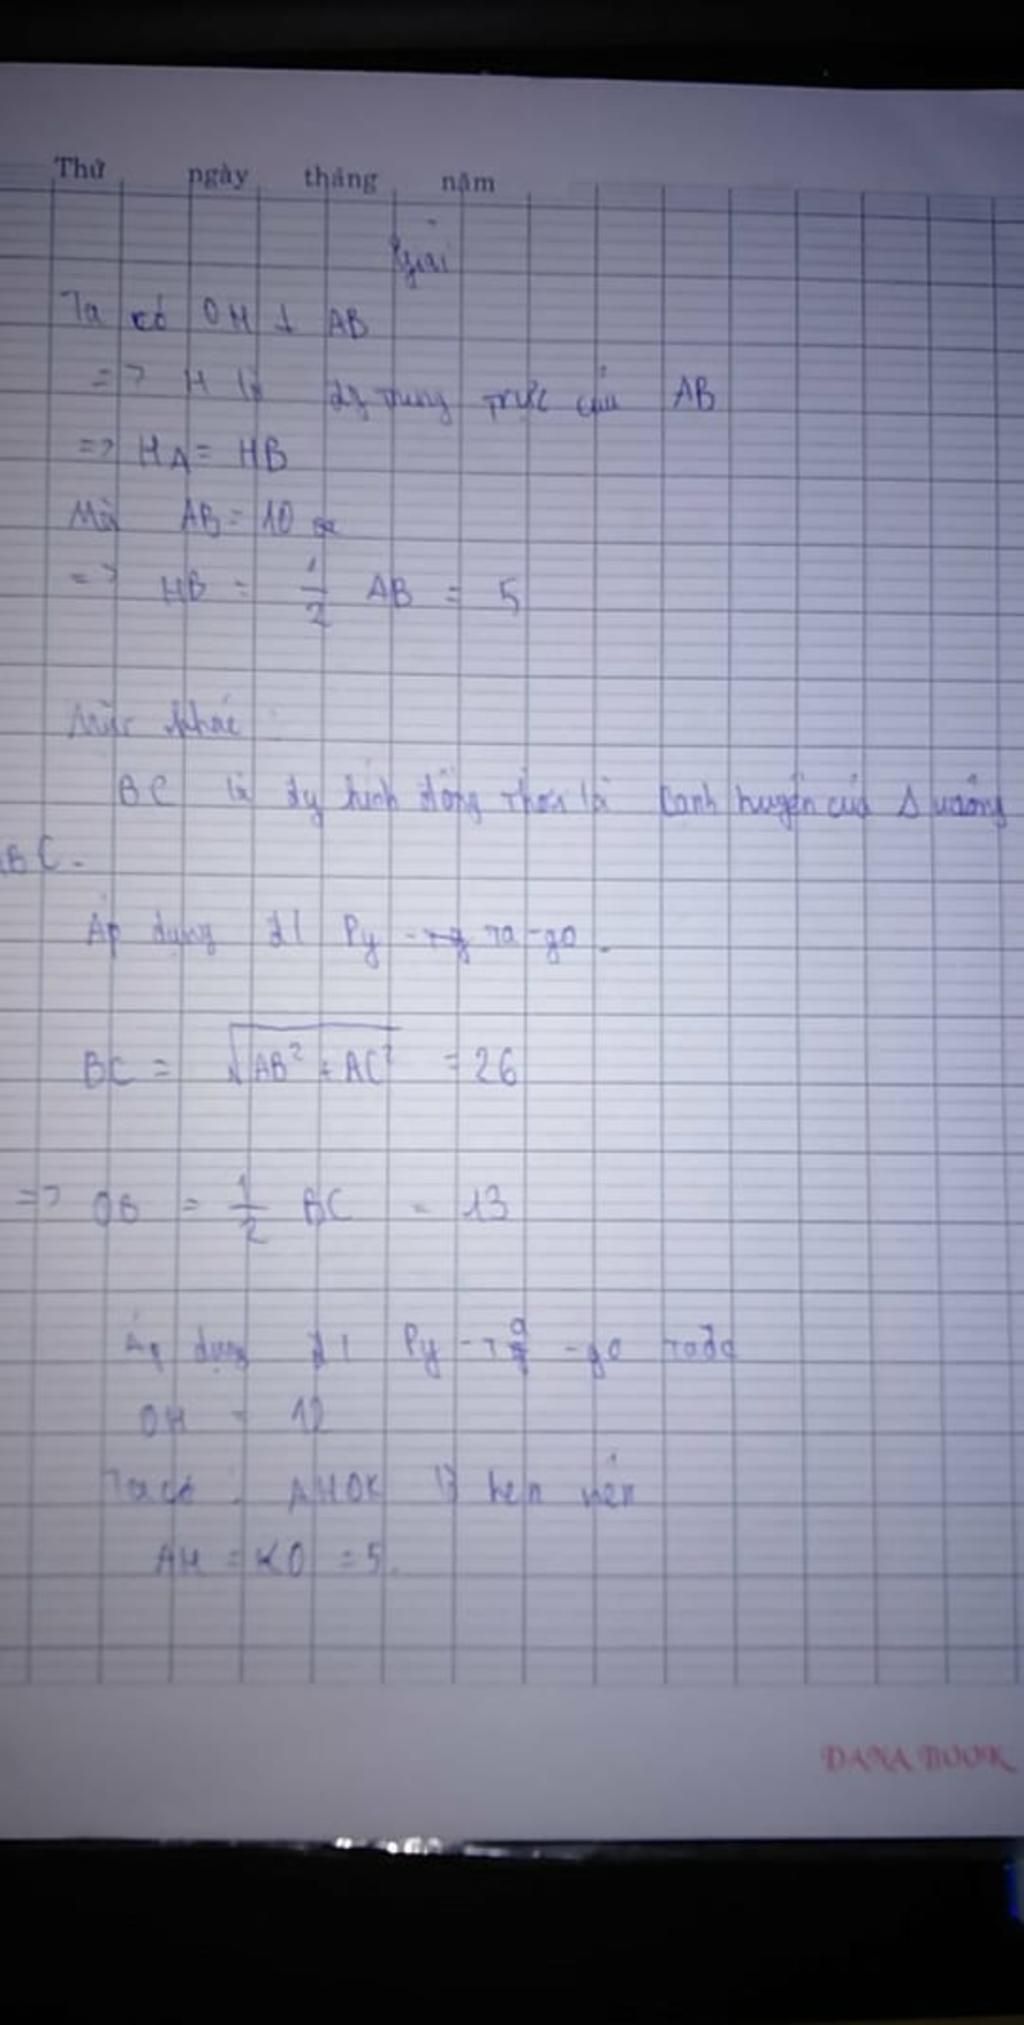 Thứ ngày tháng năm
giải
Ta có OH ⊥ AB
=> H là trung trực của AB
=> HA = HB
Mà AB = 10
=> HB = 1/2 AB = 5
Mặc khác
BC là đg kính đồng thời là cạnh huyền của Δ vuông
ABC.
Áp dụng đl Py - ta - go.
BC = √AB² + AC² = 26
=> OB = 1/2 BC = 13
Áp dụng đl Py - ta - go ta đc
OH = 12
Ta có : AHOK là hcn nên
AH = KO = 5.
DANA BOOK